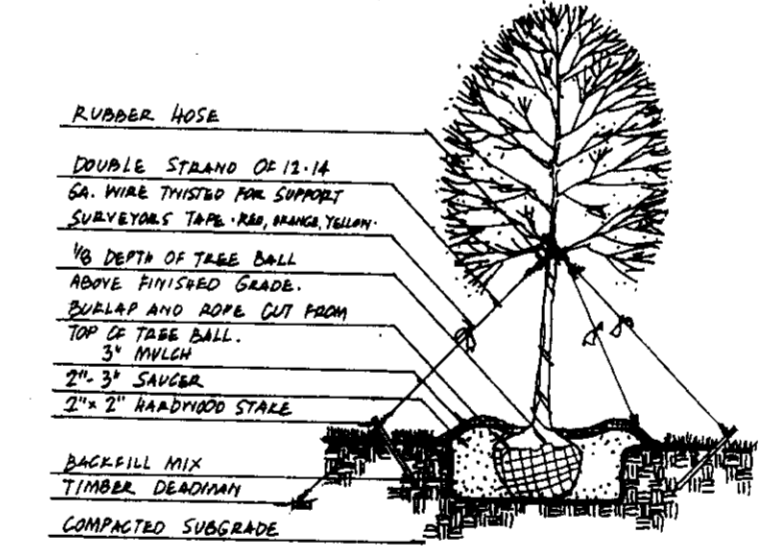 RUBBER HOSE
DOUBLE STRAND OF 12-14
GA. WIRE TWISTED FOR SUPPORT
SURVEYORS TAPE-RED, ORANGE, YELLOW-
1/8 DEPTH OF TREE BALL
ABOVE FINISHED GRADE.
BURLAP AND ROPE CUT FROM
TOP OF TREE BALL.
3" MULCH
2"-3" SAUCER
2"x 2" HARDWOOD STAKE
BACKFILL MIX
TIMBER DEADMAN
COMPACTED SUBGRADE